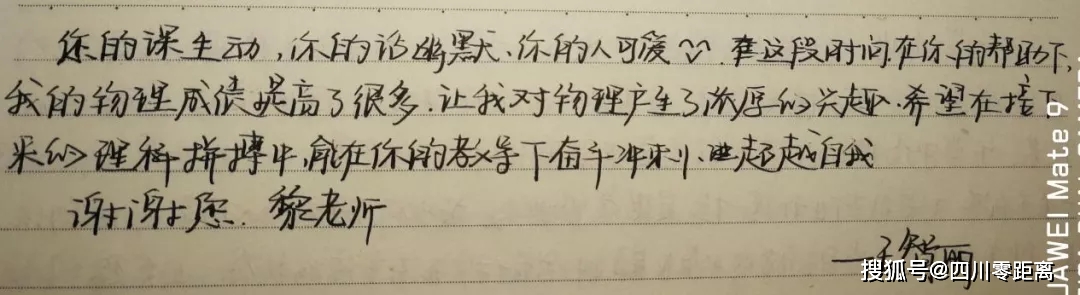 你的课生动,你的话幽默、你的人可爱 在这段时间.在你的帮助下,
我的物理成绩提高了很多.让我对物理产生了浓厚的兴趣.希望在接下
来的理科拼搏中,能在你的教导下奋斗冲刺、超越自我
谢谢您.黎老师
——王智丽
搜狐号@四川零距离
HUAWEI Mate 9